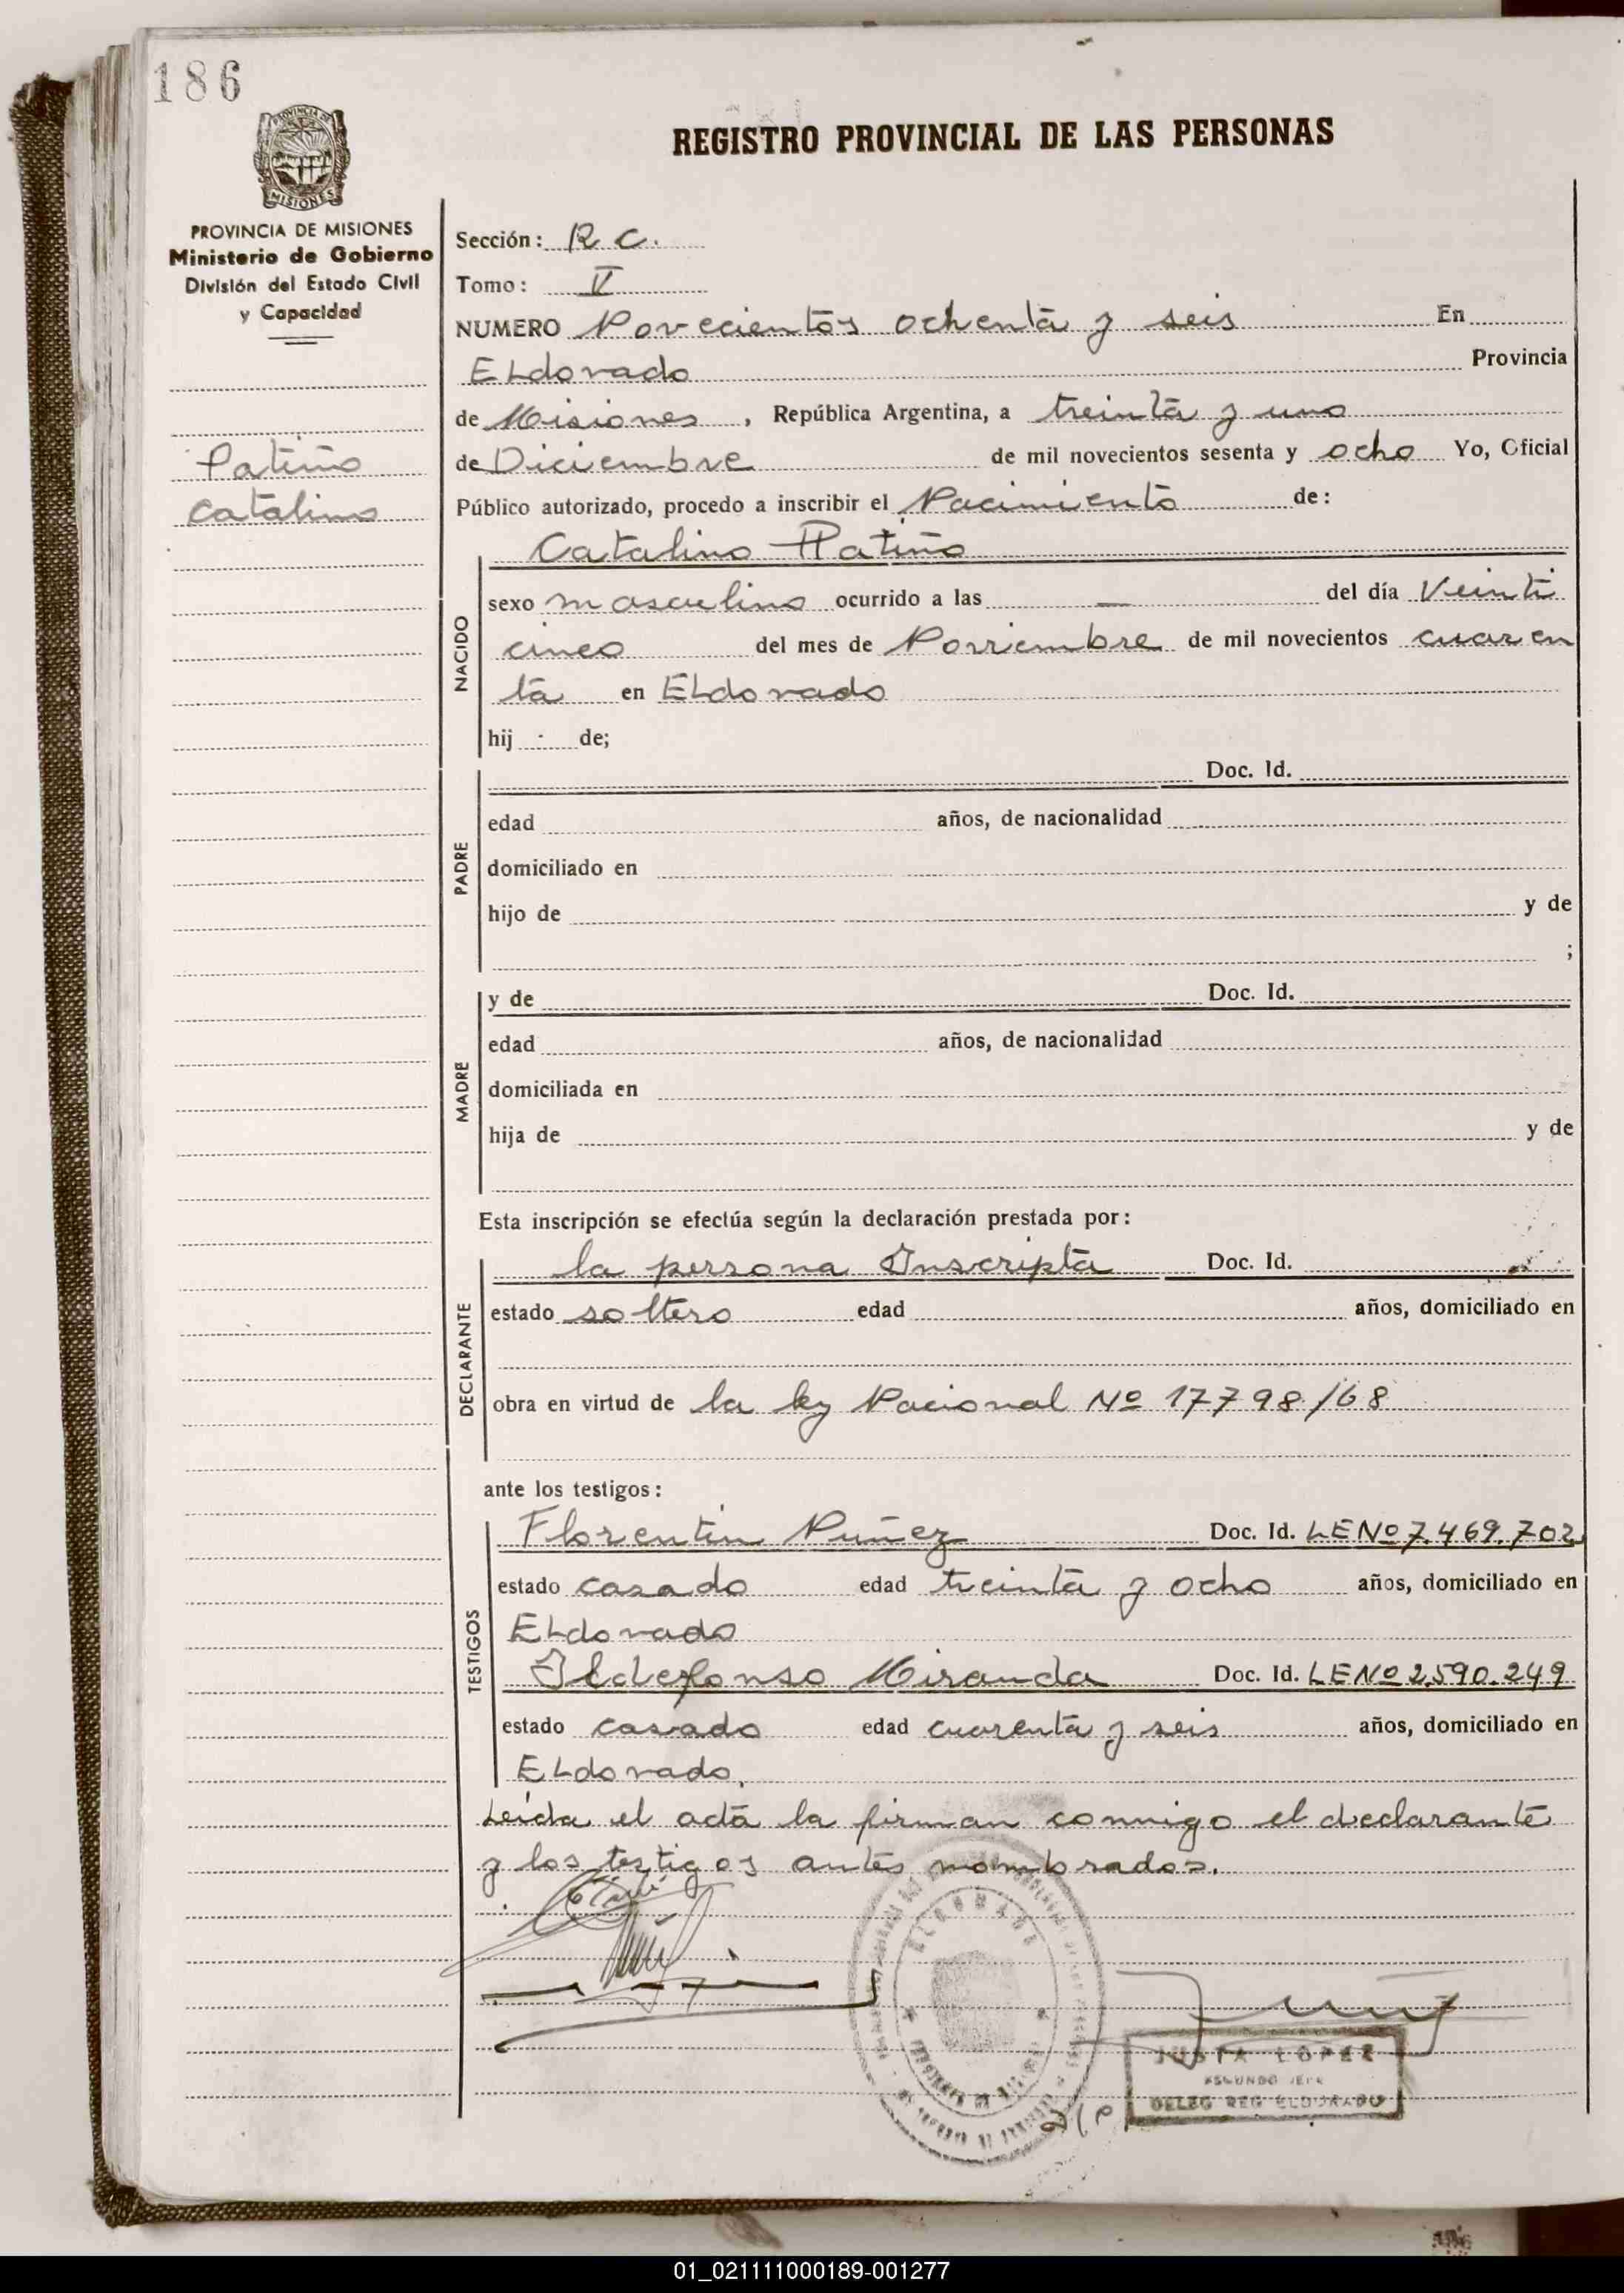 186
PROVINCIA DE
MISIONES
REGISTRO PROVINCIAL DE LAS PERSONAS
PROVINCIA DE MISIONES
Ministerio de Gobierno
División del Estado Civil
y Capacidad
Patiño
Catalino
Sección: R C.
Tomo: V
NUMERO Novecientos ochenta y seis En
ELdorado Provincia
de Misiones, República Argentina, a treinta y uno
de Diciembre de mil novecientos sesenta y ocho Yo, Oficial
Público autorizado, procedo a inscribir el Nacimiento de:
Catalino Patiño
NACIDO
sexo masculino ocurrido a las — del día Veinti
cinco del mes de Noviembre de mil novecientos cuaren
ta en ELdorado
hij de;
PADRE
Doc. Id.
edad años, de nacionalidad
domiciliado en
hijo de y de
;
MADRE
y de Doc. Id.
edad años, de nacionalidad
domiciliada en
hija de y de
Esta inscripción se efectúa según la declaración prestada por:
DECLARANTE
la persona Inscripta Doc. Id.
estado soltero edad años, domiciliado en
obra en virtud de la ley Nacional Nº 17798/68
ante los testigos:
TESTIGOS
Florentin Nuñez Doc. Id. LE Nº 7.469.702
estado casado edad treinta y ocho años, domiciliado en
ELdorado
Ildefonso Miranda Doc. Id. LE Nº 2.590.249
estado casado edad cuarenta y seis años, domiciliado en
ELdorado.
Leída el acta la firman conmigo el declarante
y los testigos antes nombrados.
ELDORADO
JUSTA LOPEZ
SEGUNDO JEFE
DELEG REG ELDORADO
01_021111000189-001277